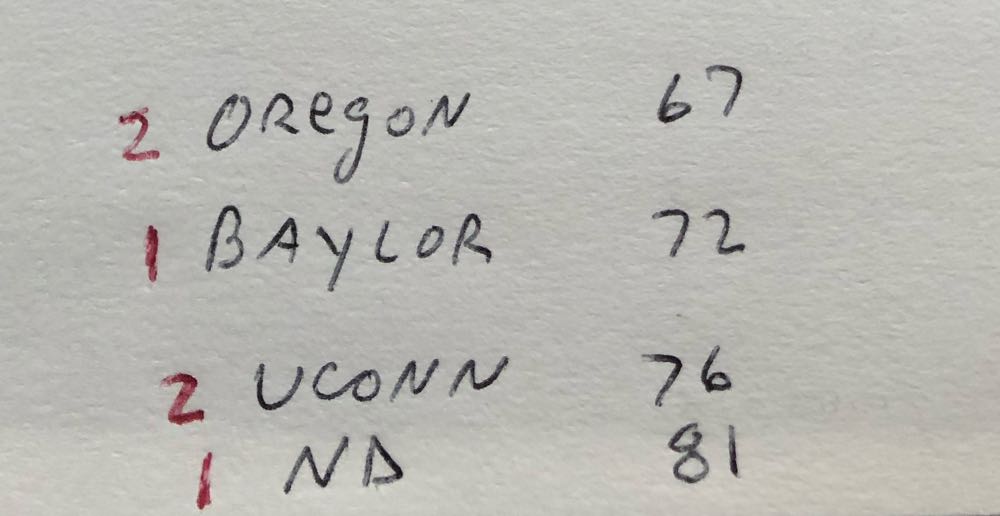 2 OREGON 67
1 BAYLOR 72
2 UCONN 76
1 ND 81